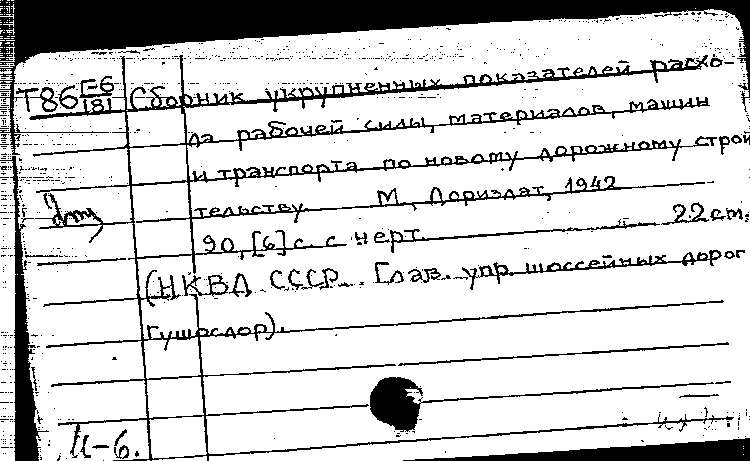 Т86 Г-6/181 Сборник укрупненных показателей расхо-
да рабочей силы, материалов, машин
и транспорта по новому дорожному строи
тельству. М., Дориздат, 1942
90, [6] с. с черт. 22 cm.
(НКВД СССР. Глав. упр. шоссейных дорог
Гушосдор).
И-6.